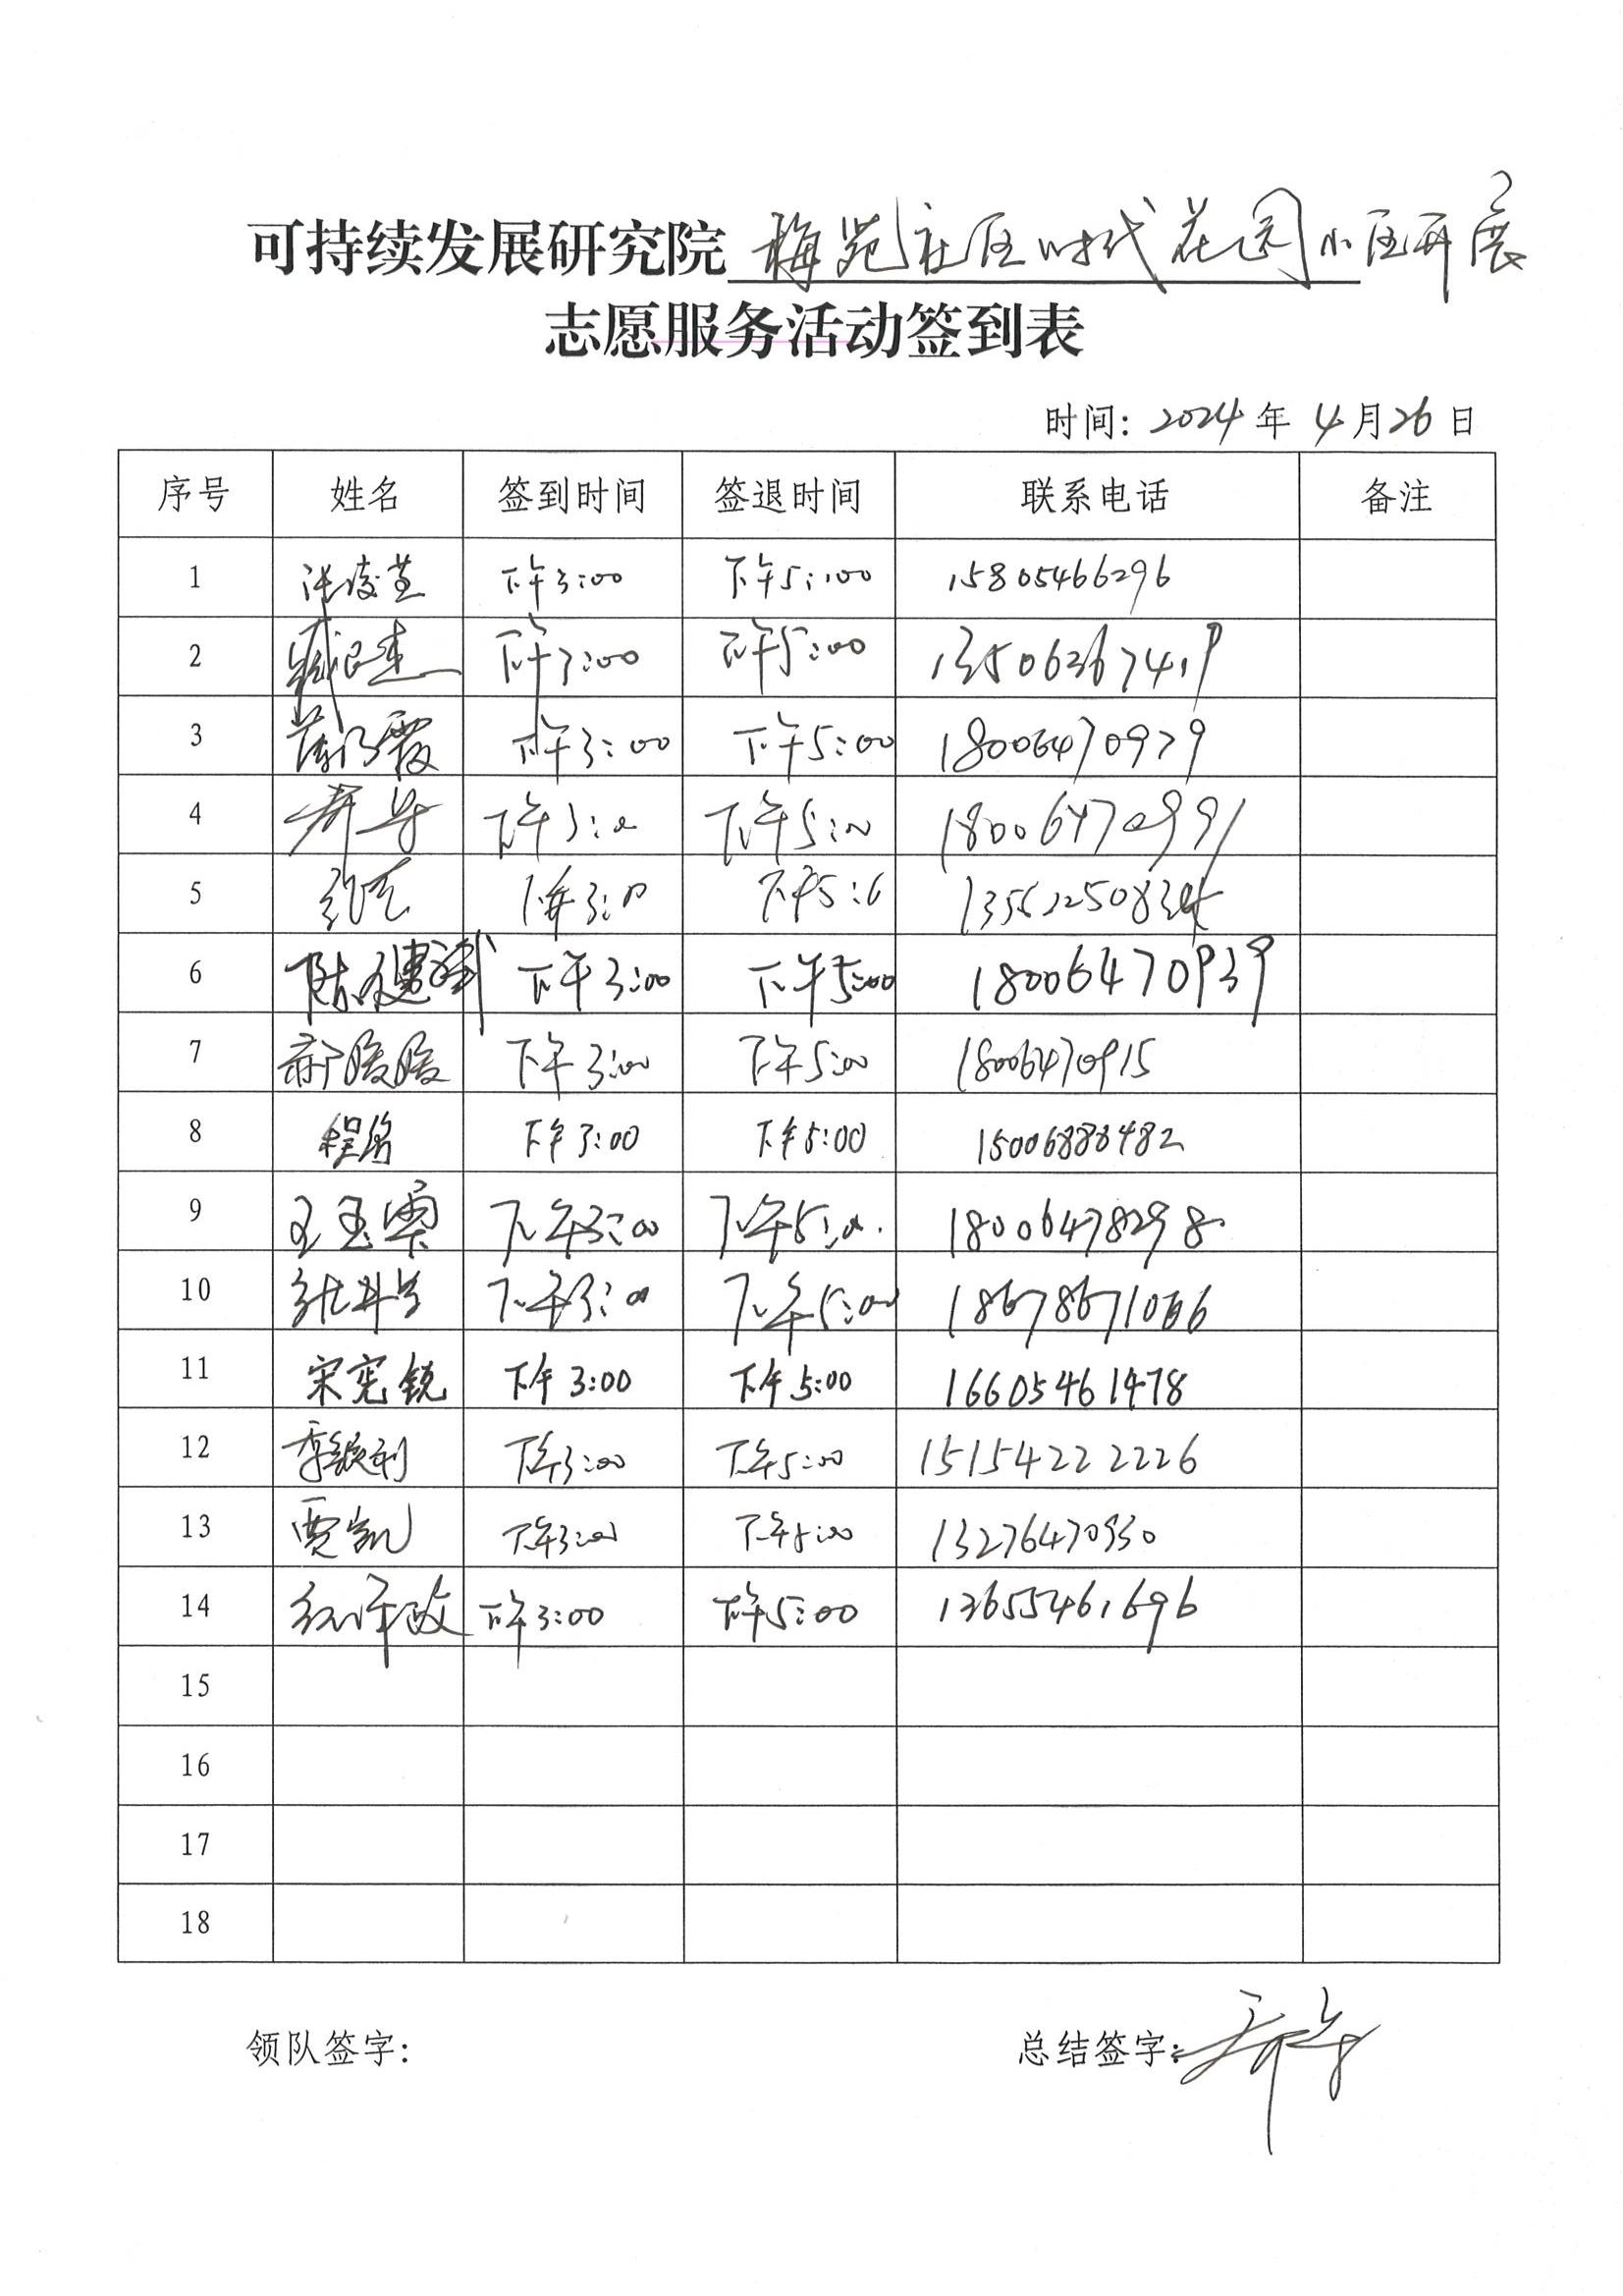 可持续发展研究院 梅苑社区时代花园小区开展
志愿服务活动签到表
时间: 2024 年 4 月 26 日
序号 姓名 签到时间 签退时间 联系电话 备注
1 下午3:00 下午5:00 15805466296
2 下午3:00 下午5:00 13506367419
3 下午3:00 下午5:00 18006470979
4 下午3:00 下午5:00 18006470991
5 下午3:00
6 下午3:00 下午5:00 18006470939
7 下午3:00 下午5:00 18006470915
8 程 下午3:00 下午5:00 15006888482
9 王玉 下午3:00 下午5:00 18006478298
10 下午3:00 下午5:00 18678671066
11 宋宪锐 下午3:00 下午5:00 16605461478
12 下午3:00 下午5:00 15154222226
13 贾凯 下午3:00 下午5:00 13276470930
14 下午3:00 下午5:00 13655461696
15
16
17
18
领队签字: 总结签字: